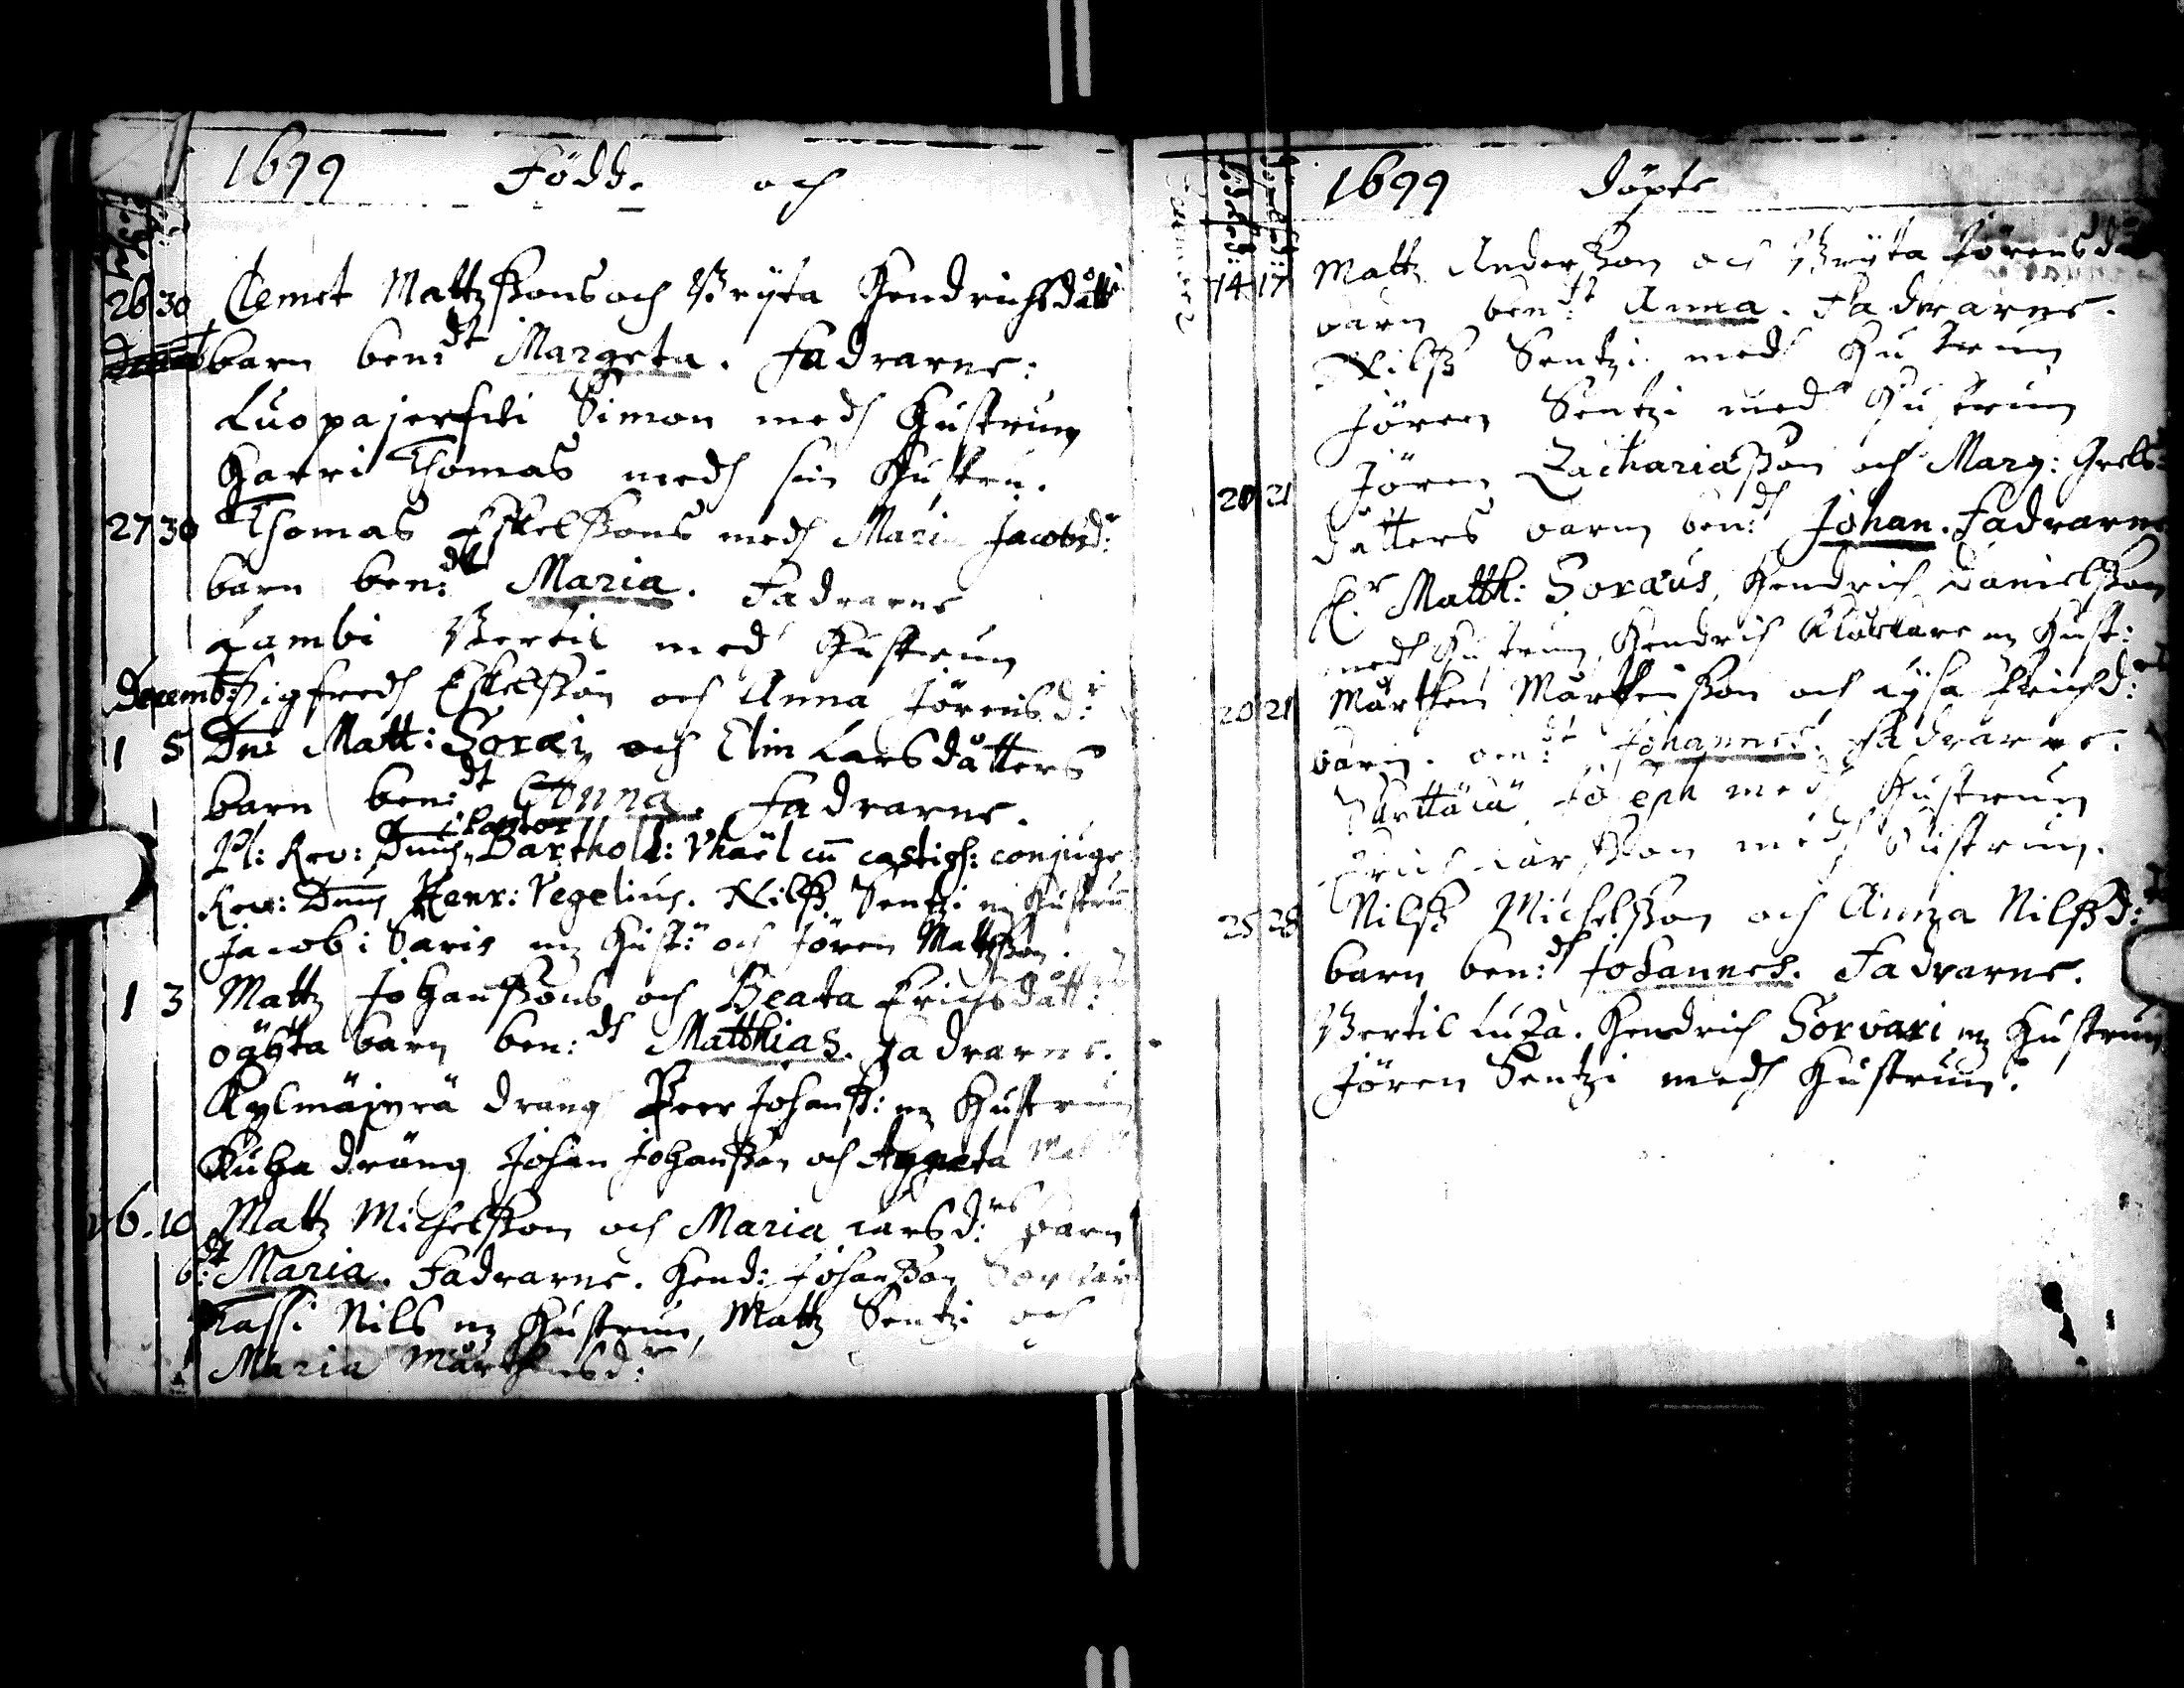 1699 Födde och
26 30 Clemet Mattzßons och Bryta Hendrichsdått
barn ben:dt Margeta. Fadrarne:
Luopajerfwi Simon medh Hustrun
Harri Thomas medh sin Hustru.
27 30 Thomas Eskelßons medh Maria Jacobsd:
barn ben:dt Maria. Fadrarne
Lambi Bertil medh Hustrun
Decemb: Sigfredh Eskelßon och Anna Jörensd:r
1 5 Dni Matt: Foræi och Elin Larsdåtters
barn ben:dt Anna. Fadrarne.
Pl: Rev: Dnus Pastor Barthold: Vhaël cu̅ castish: conjuge
Rev: Dnus Henr: Vegelius. Nilß Sentzi m Hustru
Jacob Saris m Hust: och Jören Mattzßon.
1 3 Mattz Johanßons och Beata Erichsdått:
oägta barn ben:dt Matthias. Fadrarne.
Kylmäjyrä dräng Peer Johanß: m Hustrun
Kuha dräng Johan Johanßon och Agneta
6. 10 Mattz Michelßon och Maria Larsd:rs barn
b:dt Maria. Fadrarne. Hend: Johanßon Sorvari
Kassi Nils m Hustrun, Mattz Sentzi och
Maria Mårthensd:r
1699 döpte
14 17 Mattz Anderßon och Bryta Jörensd
barn ben:dt Anna. Fadrarne.
Nilß Sentzi medh Hustrun
Jören Sentzi medh Hustrun
20 21 Jören Zachariaßon och Marg: Grels-
dåtters barn ben:dt Johan. Fadrarne
H:r Matth: Foræus, Hendrich Danielßon
medh Hustrun, Hendrich Klåckare m Hust:
20 21 Mårthen Mårthenßon och Lysa Erichsd:
barn. ben:dt Johannes. Fadrarne.
Joseph medh Hustrun
Erich Larßon medh Hustrun.
25 28 Nilß Michelßon och Anna Nilßd:
barn ben:dt Johannes. Fadrarne.
Bertil Luka. Hendrich Sorvari m Hustrun
Jören Sentzi medh Hustrun.